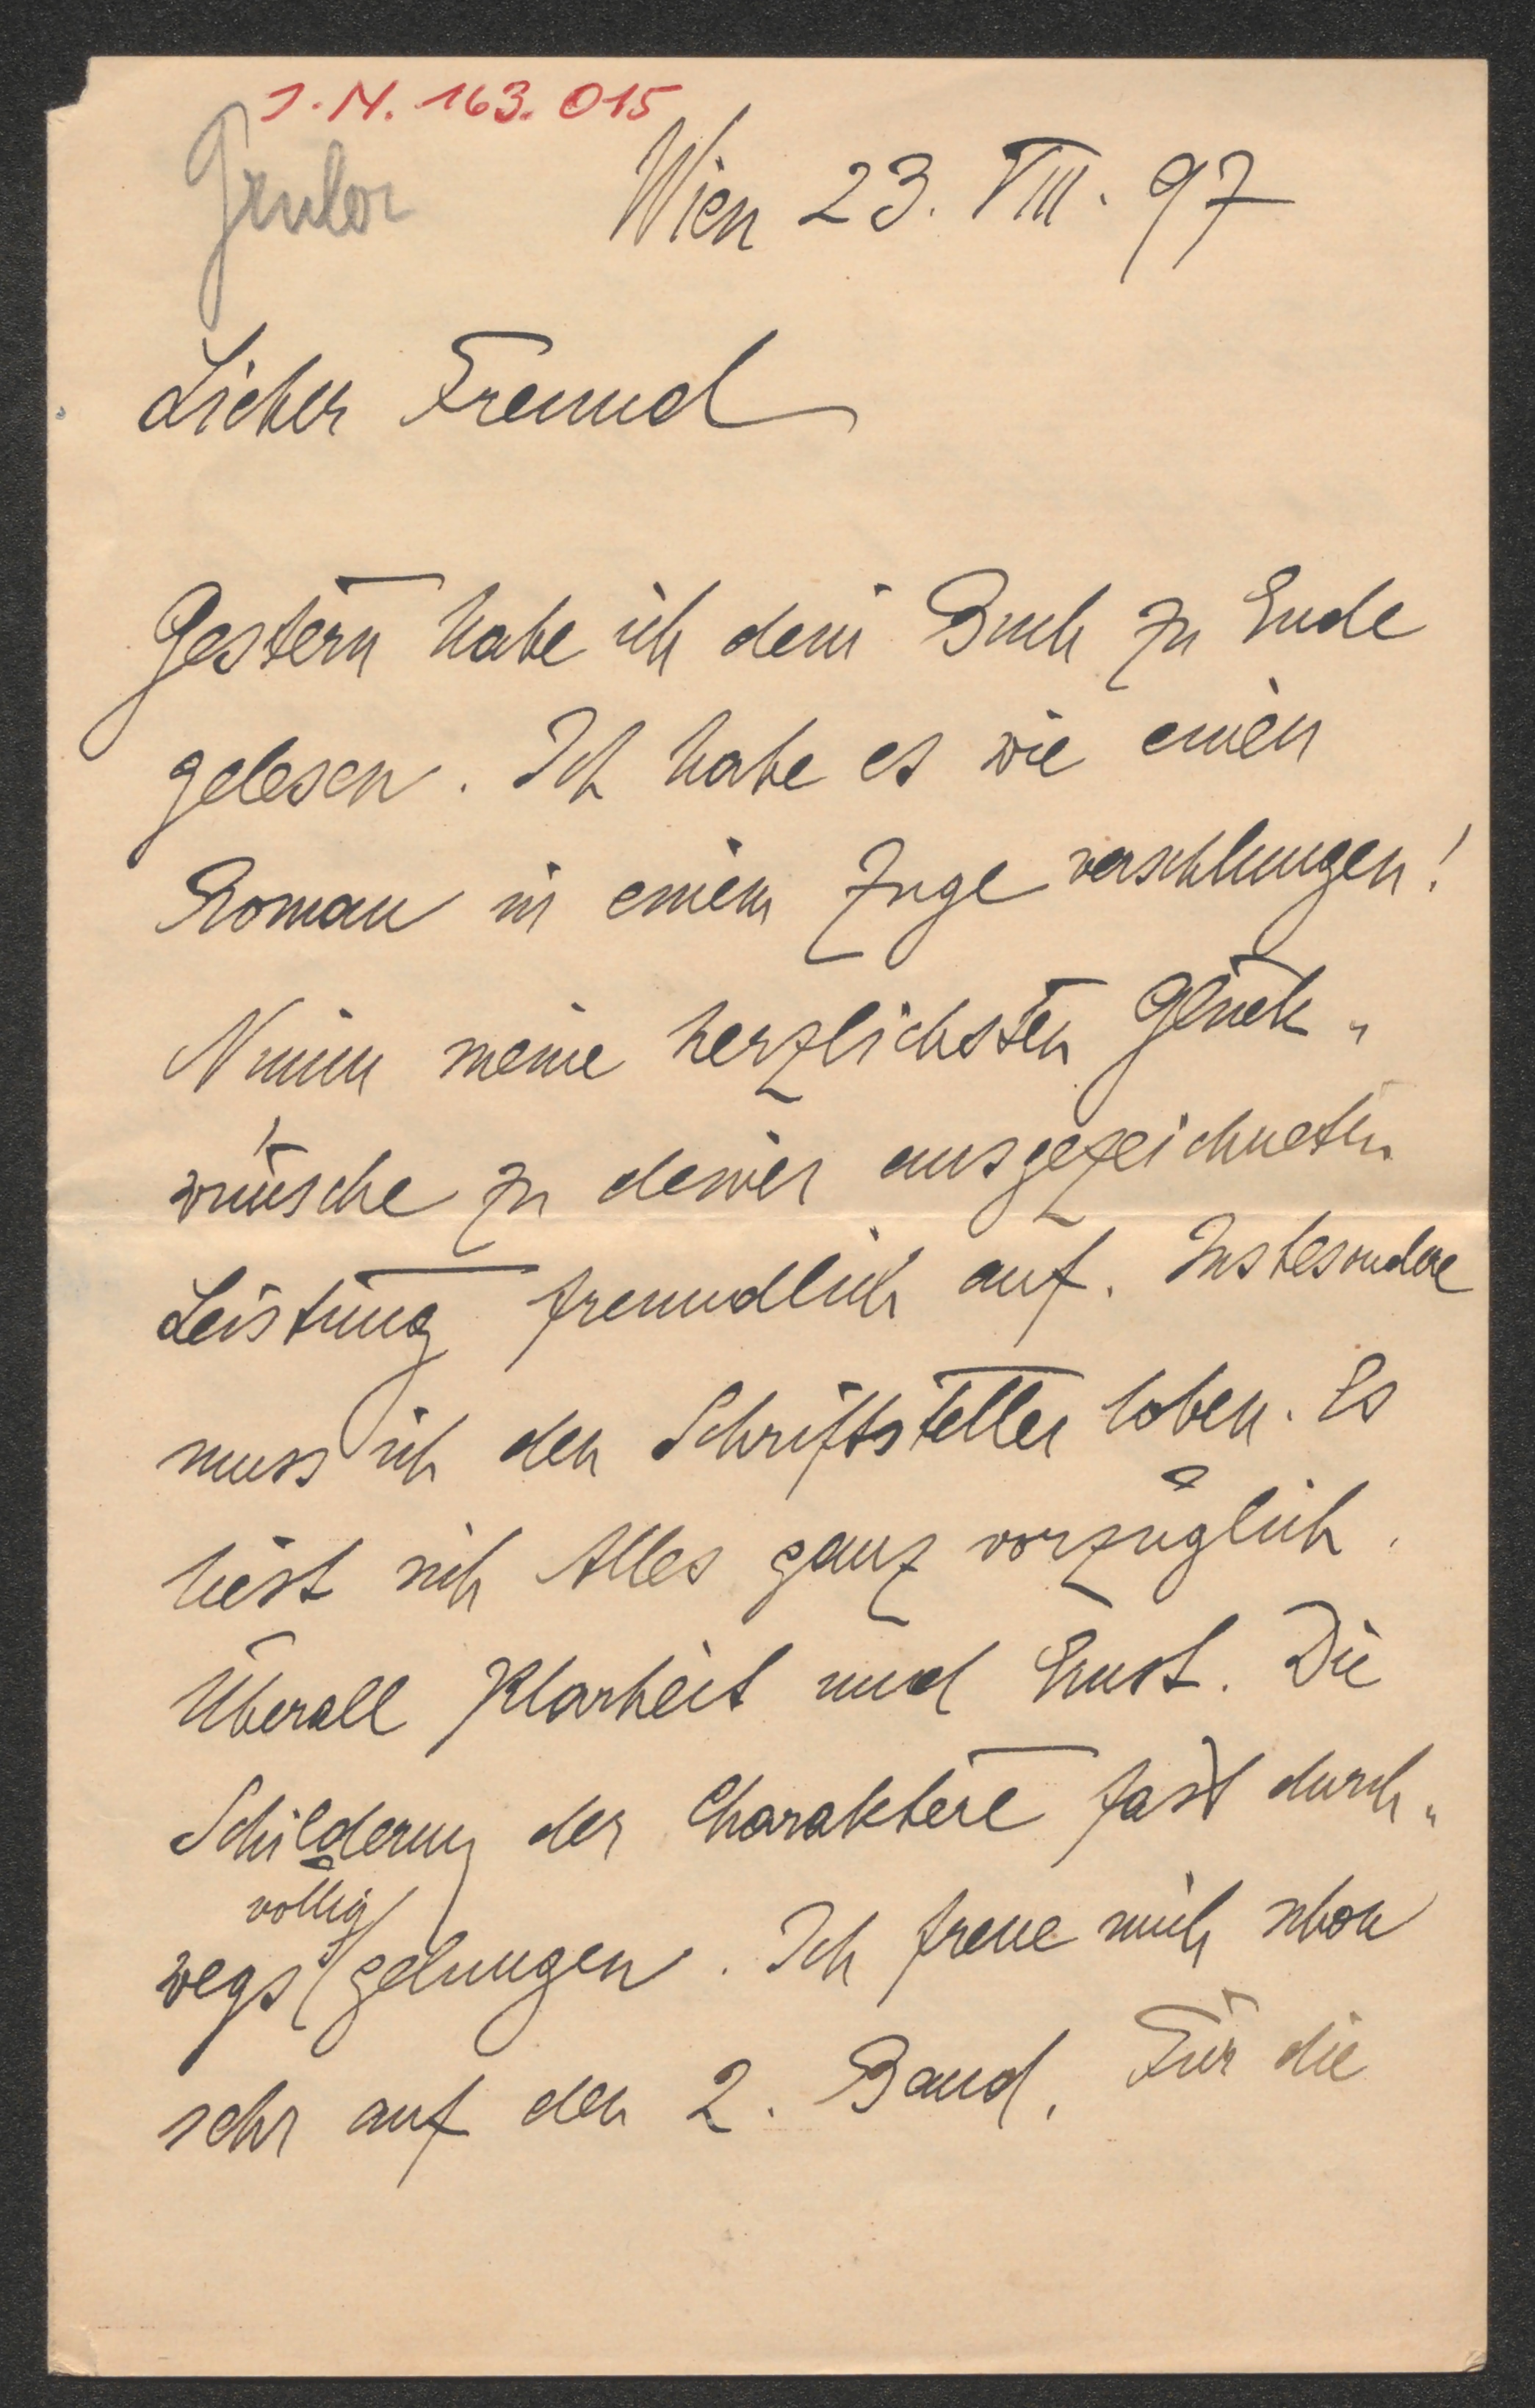 J. N. 163.015
Wien 23. VIII. 97
Lieber Freund
Gestern habe ich dein Buch zu Ende
gelesen. Ich habe es wie einen
Roman in einem Zuge verschlungen!
Nimm meine herzlichsten Glück-
wünsche zu deiner ausgezeichneten
Leistung freundlich auf. Insbesondere
muss ich den Schriftsteller loben. Es
liest sich Alles ganz vorzüglich.
Überall Klarheit und Ernst. Die
Schilderung der Charaktere fast durch-
völlig
wegs gelungen. Ich freue mich schon
sehr auf den 2. Band. Für die